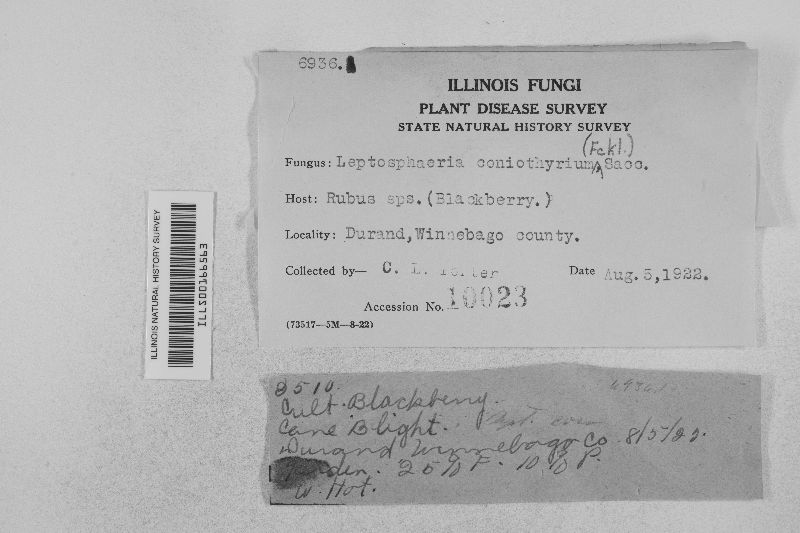 6936.
ILLINOIS FUNGI
PLANT DISEASE SURVEY
STATE NATURAL HISTORY SURVEY
(Fckl.)
Fungus: Leptosphaeria coniothyrium Sacc.
Host: Rubus sps. (Blackberry.)
Locality: Durand, Winnebago county.
Collected by— C. L. Porter Date Aug. 5, 1922.
Accession No. 10023
(73517—5M—8-22)
ILLINOIS NATURAL HISTORY SURVEY
ILLS00166563
8510.
Cult. Blackberry.
Cane Blight.
Durand Winnebago Co. 8/5/22.
25% F. 10% P.
W. Hot.